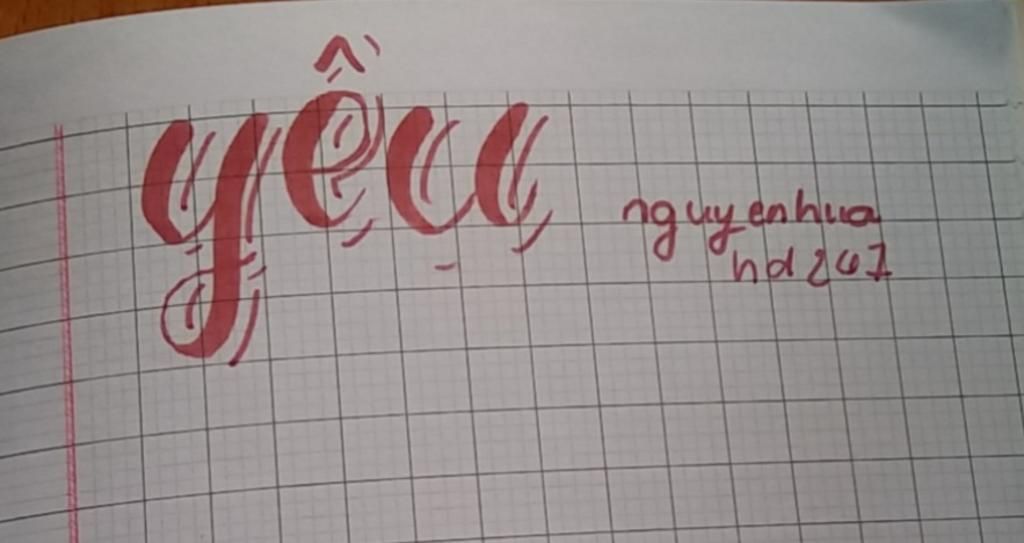 yêu
nguyenhua
hd247